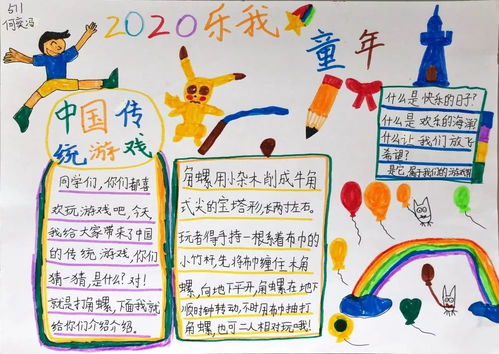 511
何奕冯
2020乐我
童年
中国传
统游戏
同学们,你们都喜
欢玩游戏吧,今天
我给大家带来了中国
的传统游戏,你们
猜一猜,是什么?对!
就是打角螺,下面我就
给你们介绍介绍。
角螺用小杂木削成牛角
式尖的宝塔形,长两寸左右。
玩者得手持一根系着布巾的
小竹杆,先将布巾缠住木角
螺,向地下于开,角螺在地下
顺时钟转动,不时用布巾抽打
角螺,也可二人相对玩哦!
什么是快乐的日子?
什么是欢乐的海洋?
什么让我们放飞
希望?
是它属于我们的游戏